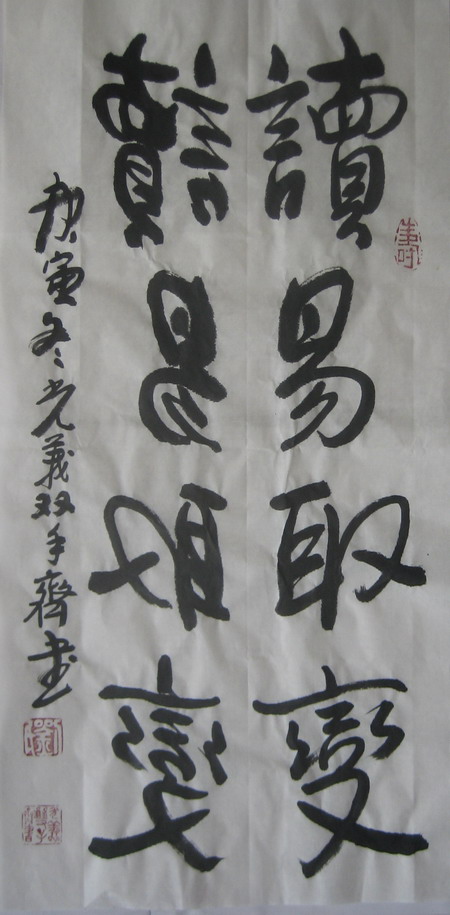 讀易取變
讀易取變
庚寅冬光義双手齊書